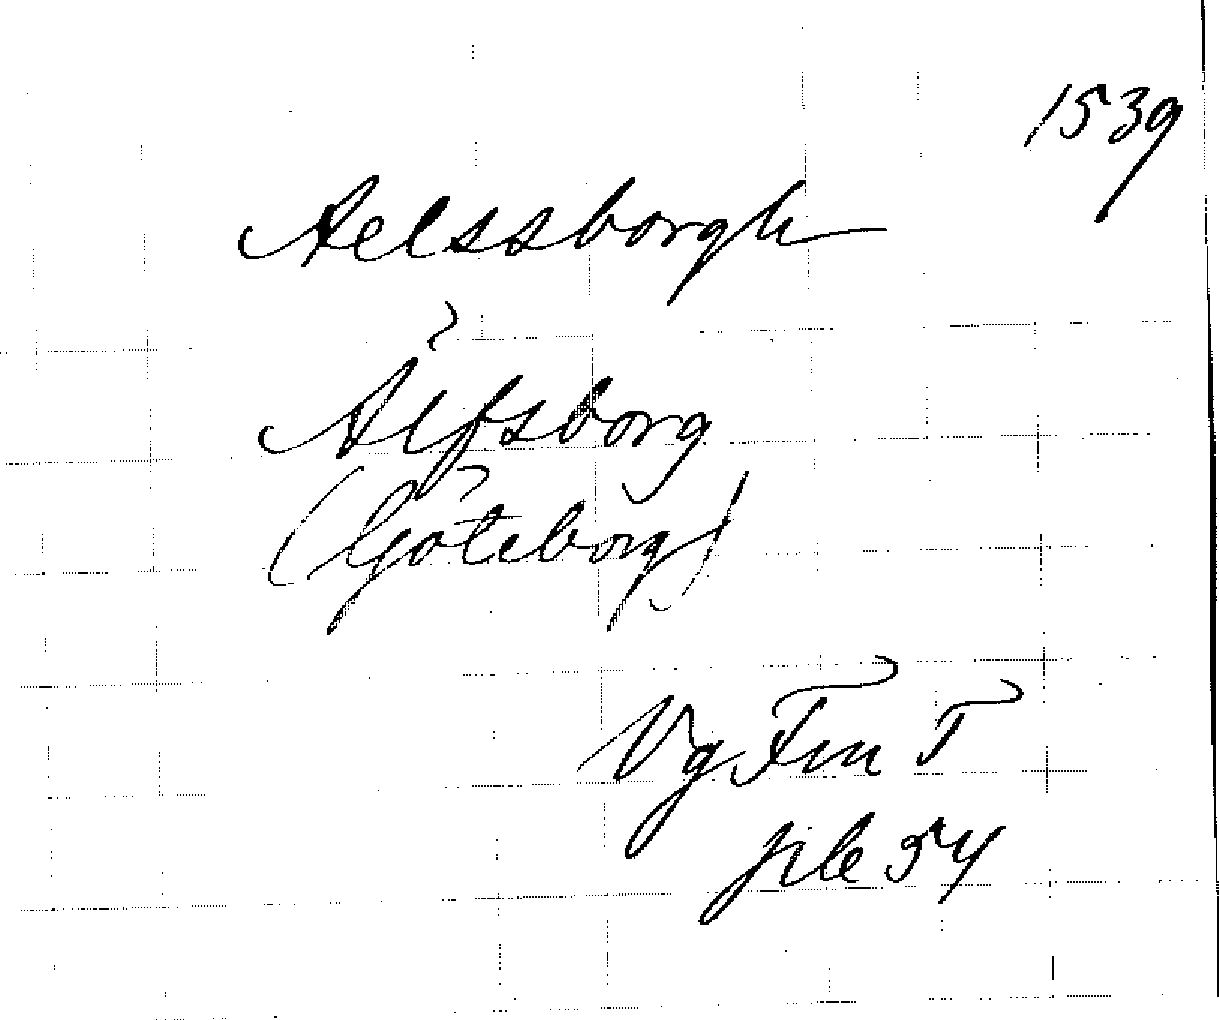 1539
Aelssborgh
Älfsborg
(Göteborg)
Vg Fm T
file 54